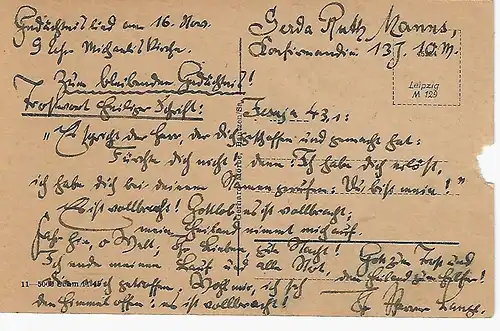 Gedächtnislied am 16. Nov.
9 Uhr Michaeliskirche.
Gerda Ruth Manns,
Konfirmandin 13 J. 10 M.
Leipzig
M 129
Zum bleibenden Gedächtnis!
Trostwort Heiliger Schrift:
Jesaja 43,1:
"So spricht der Herr, der dich geschaffen und gemacht hat:
Fürchte dich nicht, denn Ich habe dich erlöst,
ich habe dich bei deinem Namen gerufen: Du bist mein!"
Es ist vollbracht! Gottlob, es ist vollbracht;
mein Heiland nimmt mich auf.
Fahr hin, o Welt, Ihr Lieben, gute Nacht!
Ich ende meinen Lauf und alle Not,
die mich getroffen. Wohl mir, ich seh
den Himmel offen: es ist vollbracht!
Gott zum Trost und
dem Heiland zum Helfer!
Ihr Pfarrer